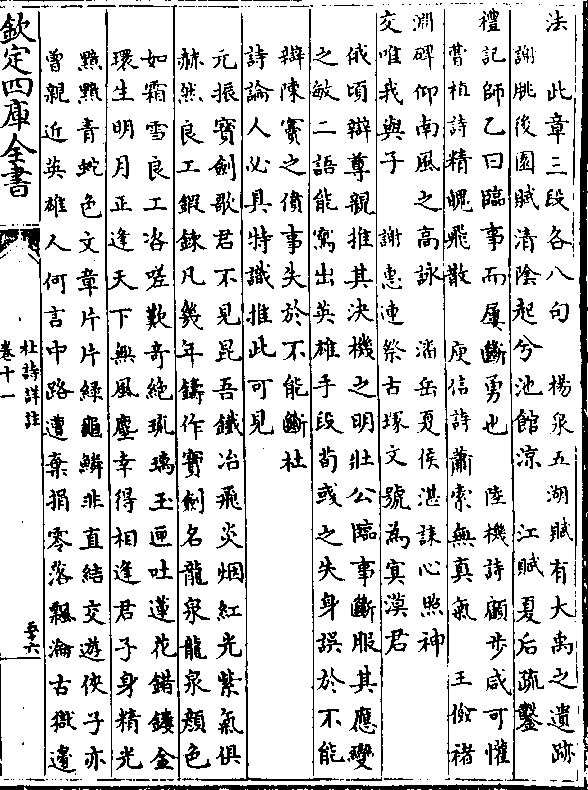 法　此章三段各八句　楊泉五湖賦有大禹之遺跡
謝朓後園賦清陰起兮池館涼　江賦夏后疏鑿
禮記師乙曰臨事而屢斷勇也　陸機詩顧步咸可懽
曹植詩精魄飛散　庾信詩蕭索無真氣　王儉褚
淵碑仰南風之高詠　潘岳夏侯湛誄心照神
交唯我與子　謝惠連祭古塚文號為寞漠君
俄頃辯尊親推其決機之明壯公臨事斷服其應變
之敏二語能寫出英雄手段茍或之失身誤於不能
辯陳竇之僨事失於不能斷杜
詩論人必具特識推此可見
元振寶劍歌君不見昆吾鐵冶飛炎烟紅光紫氣俱
赫然良工鍛鍊凡幾年鑄作寶劍名龍泉龍泉顏色
如霜雪良工咨嗟歎奇絶琉璃玉匣吐蓮花錯鏤金
環生明月正逢天下無風塵幸得相逢君子身精光
黯黯青蛇色文章片片綠龜鱗非直結交遊俠子亦
曾親近英雄人何言中路遭棄捐零落飄淪古獄邊
欽定四庫全書
杜詩詳註
卷十一
至六